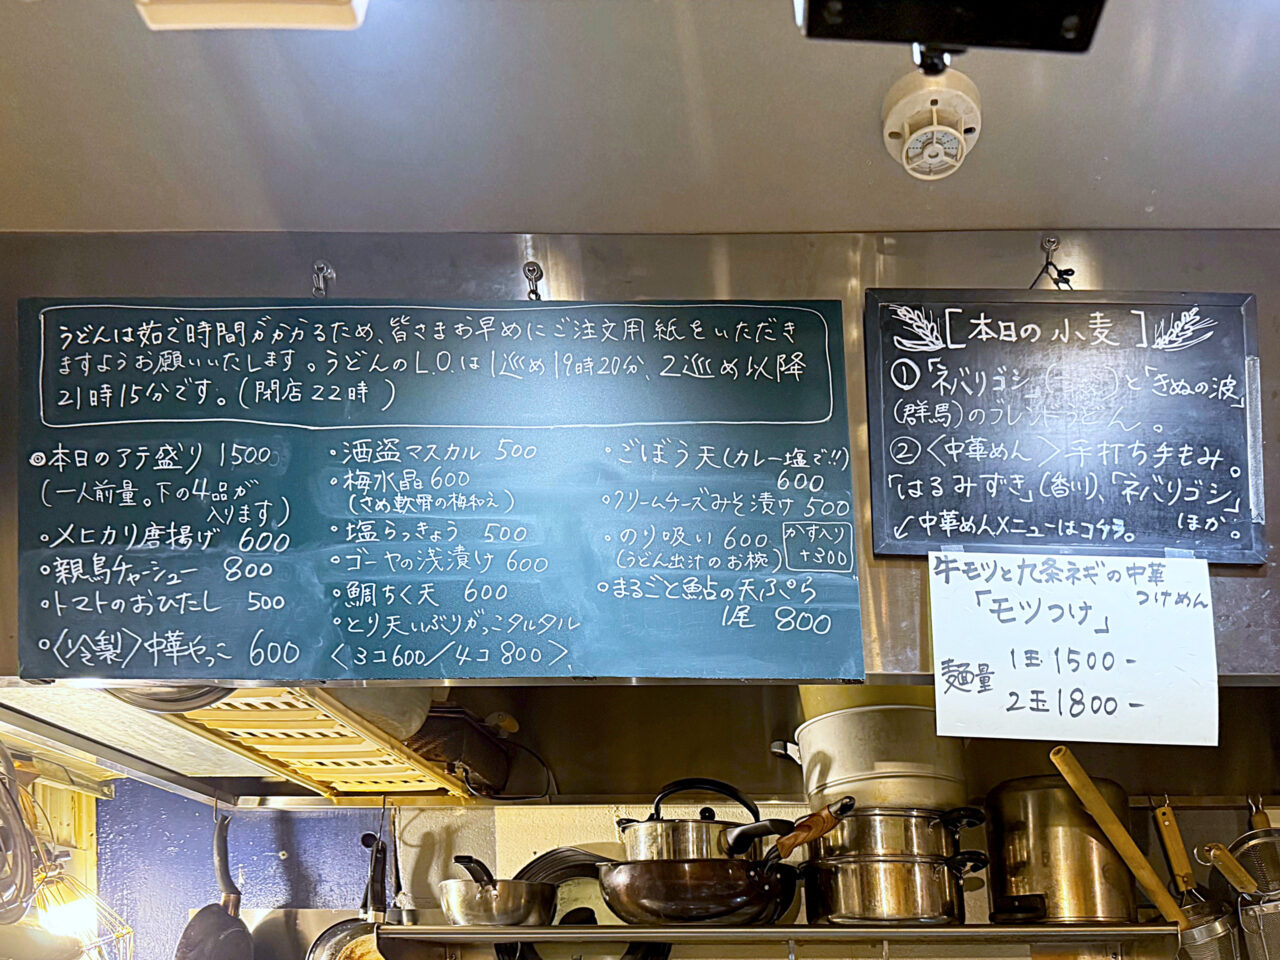 うどんは茹で時間がかかるため、皆さまお早めにご注文用紙をいただき
ますようお願いいたします。うどんのL.O.は1巡め19時20分、2巡め以降
21時15分です。(閉店22時 )
◎本日のアテ盛り 1500
(一人前量。下の4品が
入ります)
・メヒカリ唐揚げ 600
・親鳥チャーシュー 800
・トマトのおひたし 500
・〈冷製〉中華やっこ 600
・酒盗マスカル 500
・梅水晶 600
(さめ軟骨の梅和え)
・塩らっきょう 500
・ゴーヤの浅漬け 600
・鯛ちく天 600
・とり天いぶりがっこタルタル
〈3コ600/4コ800〉
・ごぼう天(カレー塩で!!)
600
・クリームチーズみそ漬け 500
・のり吸い 600
(うどん出汁のお椀)
かす入り
+300
・まるごと鮎の天ぷら
1尾 800
[本日の小麦]
①「ネバリゴシ」と「きぬの波」
(群馬)のブレンドうどん。
②〈中華めん〉手打ち手もみ。
「はるみずき」(香川)、「ネバリゴシ」
ほか。
↙中華めんメニューはコチラ。
牛モツと九条ネギの中華
つけめん
「モツつけ」
麺量
1玉1500-
2玉1800-